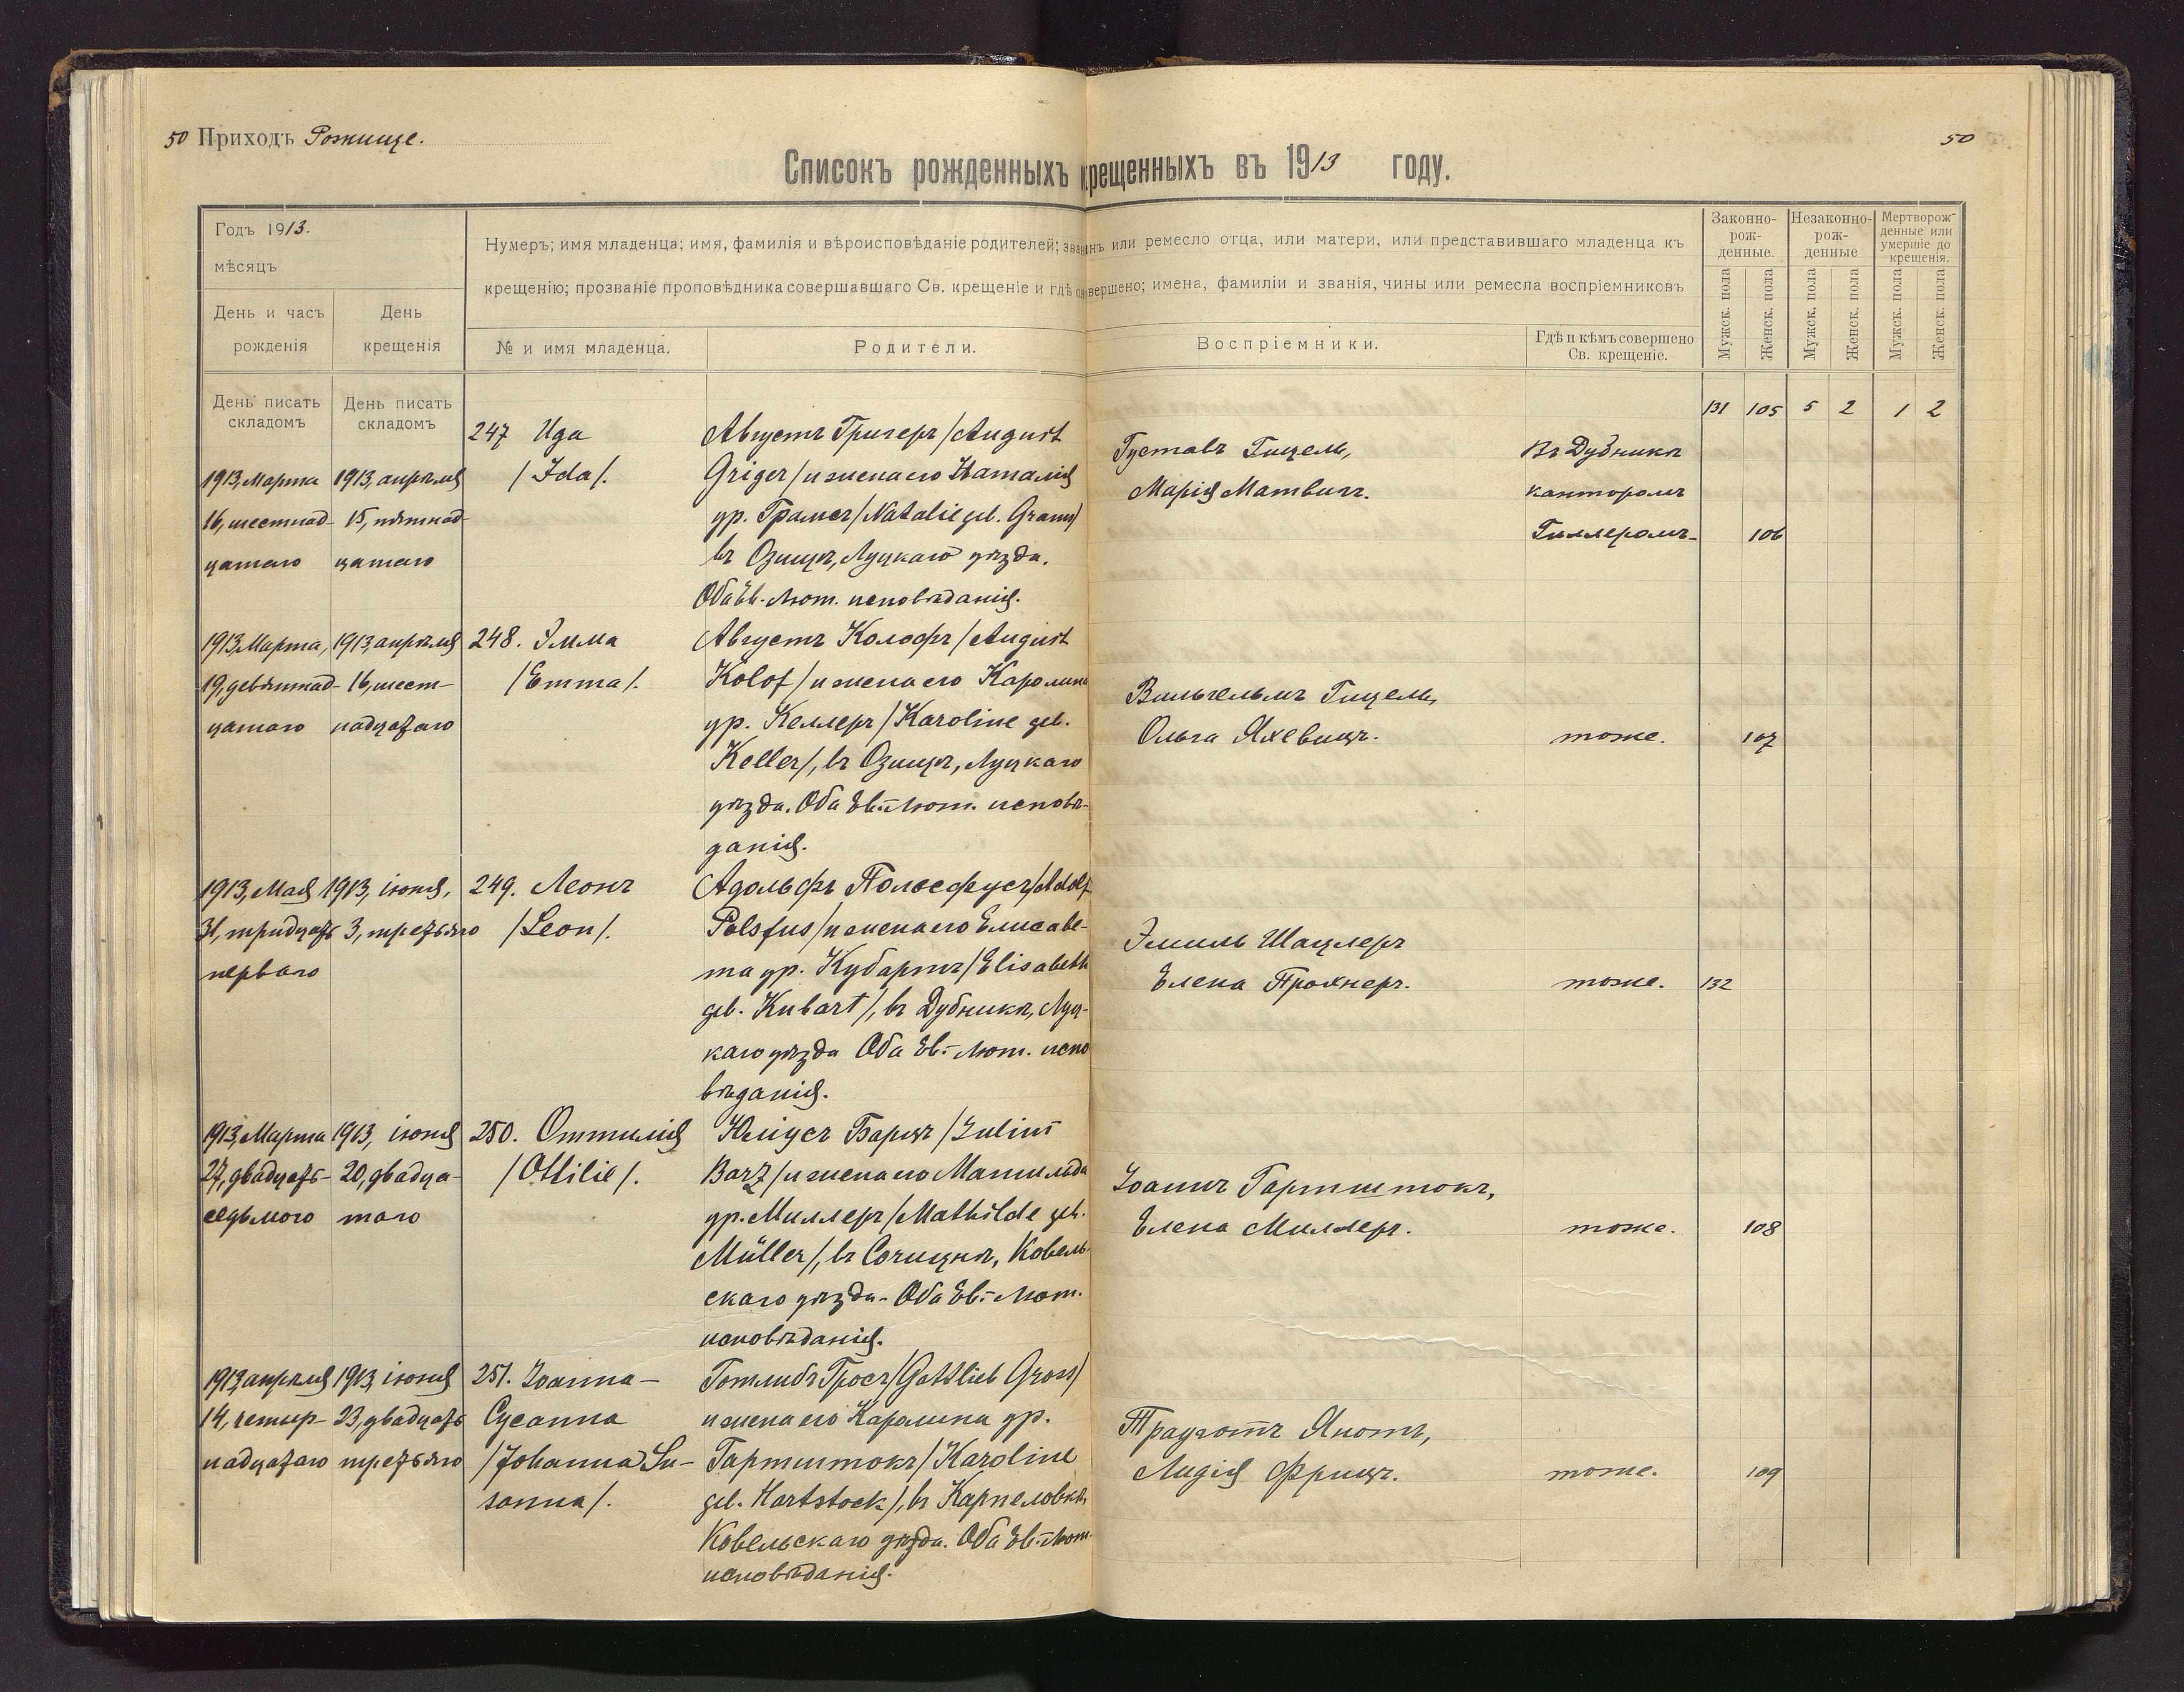 50 Приходъ Рожище.
50
Списокъ рожденныхъ крещенныхъ въ 1913 году.
Годъ 1913.
мѣсяцъ
День и часъ рожденія
День крещенія
Нумеръ; имя младенца; имя, фамилія и вѣроисповѣданіе родителей; или ремесло отца, или матери, или представившаго младенца къ
крещенію; прозваніе проповѣдника совершавшаго Св. крещеніе и гдѣ имена, фамиліи и званія, чины или ремесла воспріемниковъ
№ и имя младенца.
Родители.
Воспріемники.
Гдѣ и кѣмъ совершено
Св. крещеніе.
Законно-
рож-
денные.
Незаконно-
рож-
денные
Мертворож-
денные или
умершіе до
крещенія.
Мужск. пола
Женск. пола
Мужск. пола
Женск. пола
Мужск. пола
Женск. пола
День писать
складомъ
День писать
складомъ
131 105 5 2 1 2
1913, Марта
16, шестнад-
цатаго
1913, апрѣля
15, пятнад-
цатаго
247 Ида
/Ida/.
Августъ Григеръ /August
Griger/ и жена его Наталія
ур. Грамсъ /Natalie geb. Grams/
въ Озищѣ, Луцкаго уѣзда.
Оба Ев.-Лют. исповѣданія.
Густавъ Гицель,
Марія Матвигъ.
Въ Дубникѣ
канторомъ
Гиллеромъ-
106
1913, Марта,
19, девятнад-
цатаго
1913, апрѣля
16, шест-
надцатаго
248. Эмма
/Emma/.
Августъ Колофъ /August
Kolof/ и жена его Каролина
ур. Келлеръ /Karoline geb.
Keller/, въ Озищѣ, Луцкаго
уѣзда. Оба Ев.-Лют. исповѣ-
данія.
Вильгельмъ Гицель,
Ольга Яхевицъ.
тоже.
107
1913, Мая
31, тридцать
перваго
1913, іюня,
3, третьяго
249. Леонъ
/Leon/.
Адольфъ Польсфусъ /Adolf
Polsfus/ и жена его Елисаве-
та ур. Кубартъ /Elisabeth
geb. Kubart/, въ Дубникѣ, Луц-
каго уѣзда Оба Ев.-Лют. испо
вѣданія.
Эмиль Шацлеръ
Елена Прохнеръ.
тоже.
132
1913, Марта
27, двадцать-
седьмого
1913, іюня
20, двадца-
таго
250. Оттилія
/Ottilie/.
Юліусъ Барцъ /Julius
Barz/ и жена его Матильда
ур. Миллеръ /Mathilde geb.
Müller/, въ Ковель-
скаго уѣзда- Оба Ев.-Лют.
исповѣданія.
Іоаннъ Гартштокъ,
Елена Миллеръ.
тоже.
108
1913, апрѣля
14, четыр-
надцатаго
1913, іюня
23, двадцать
третьяго
251. Іоанна-
Сусанна
/Johanna Su-
sanna/.
Готлибъ Гросъ /Gottlieb Gross/
и жена его Каролина ур.
Гартштокъ /Karoline
geb. Hartstock/, въ Карпеловкѣ,
Ковельскаго уѣзда. Оба Ев.-Лют.
исповѣданія.
Трауготъ Яхотъ,
Лидія Фрицъ.
тоже.
109